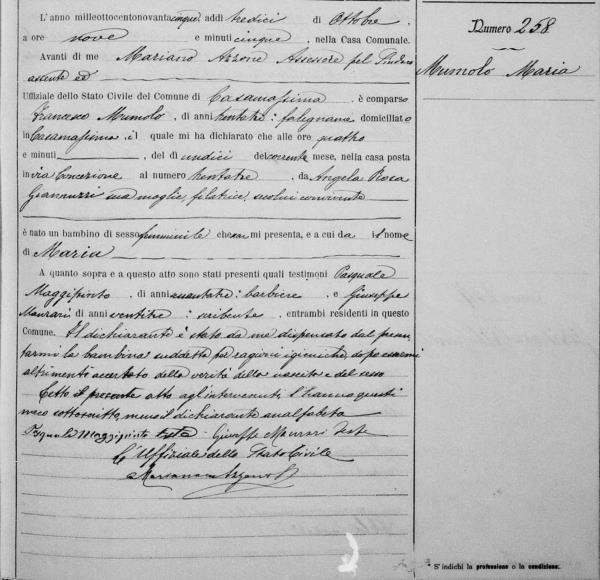 L'anno milleottocentonovantacinque, addì tredici di Ottobre
a ore nove e minuti cinque, nella Casa Comunale.
Avanti di me Mariano Azzone Assessore pel Sindaco
assente ed
Uffiziale dello Stato Civile del Comune di Casamassima, è comparso
Francesco Mumolo, di anni trentatre: falegname domiciliato
in Casamassima, il quale mi ha dichiarato che alle ore quattro
e minuti, del dì undici del corrente mese, nella casa posta
in via Concezione al numero trentatre, da Angela Rosa
Giannuzzi sua moglie, filatrice, secolui convivente
è nato un bambino di sesso femminile che mi presenta, e a cui dà il nome
di Maria
A quanto sopra e a questo atto sono stati presenti quali testimoni Pasquale
Maggipinto, di anni quarantatre: barbiere e Giuseppe
di anni ventitre: scribente, entrambi residenti in questo
Comune. Il dichiarante è stato da me dispensato dal presen-
tarmi la bambina suddetta per ragioni igieniche, dopo essermi
altrimenti accertato della verità della nascita e del sesso
Letto il presente atto agli intervenuti l'hanno questi
meco sottoscritto, meno il dichiarante analfabeta
Pasquale Maggipinto teste Giuseppe teste
L'Uffiziale dello Stato Civile
Mariano Azzone
Numero 258
Mumolo Maria
S'indichi la professione o la condizione.